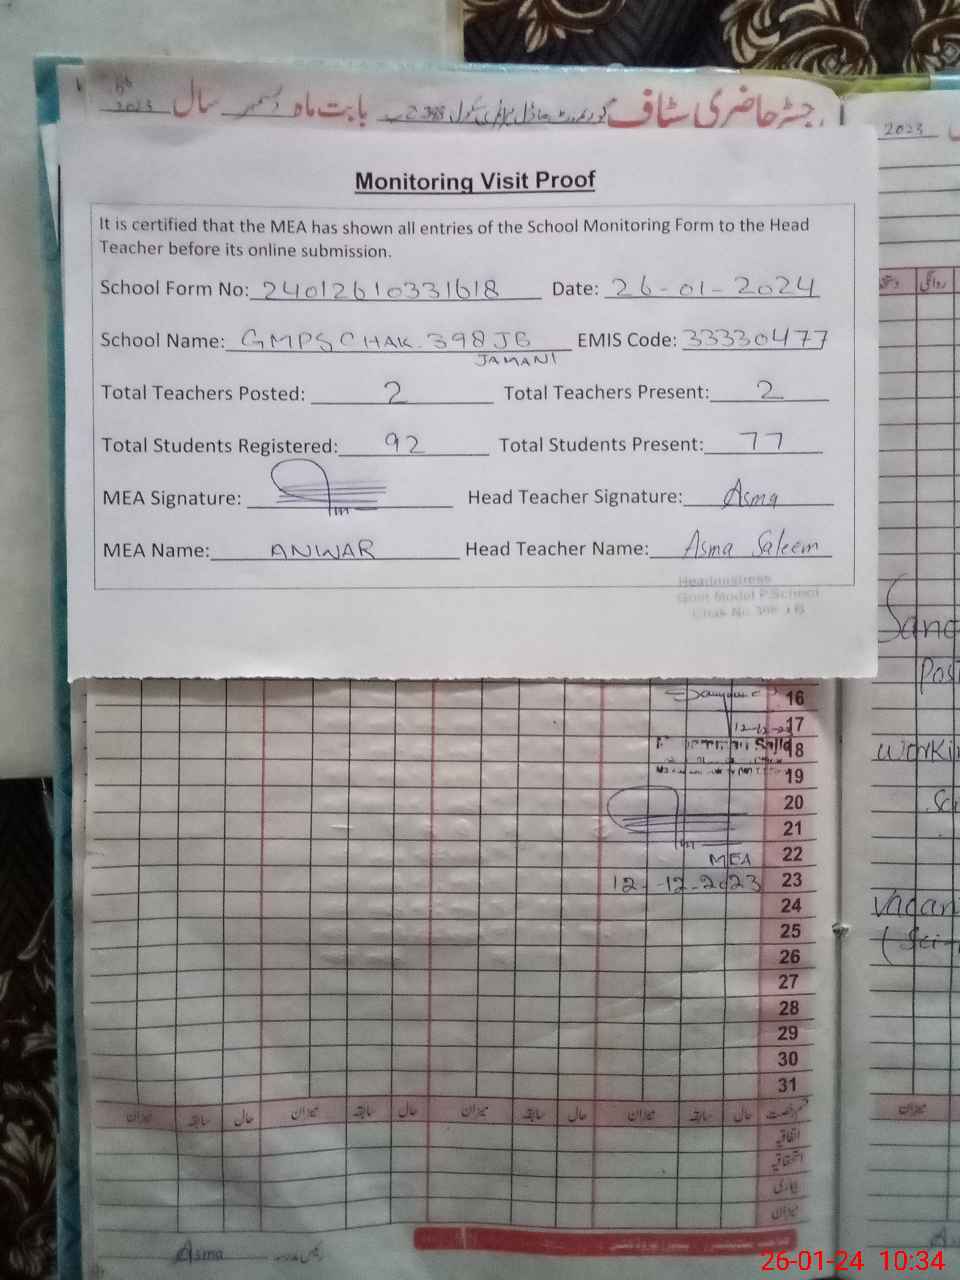 رجسٹر حاضری سٹاف گورنمنٹ ماڈل پرائمری سکول 398 ج ب بابت ماہ دسمبر سال 2023
2023
Monitoring Visit Proof
It is certified that the MEA has shown all entries of the School Monitoring Form to the Head
Teacher before its online submission.
School Form No: 24012610331618 Date: 26-01-2024
School Name: GMPS CHAK.398JB EMIS Code: 33330477
JAMANI
Total Teachers Posted: 2 Total Teachers Present: 2
Total Students Registered: 92 Total Students Present: 77
MEA Signature: Head Teacher Signature: Asma
MEA Name: ANWAR Head Teacher Name: Asma Saleem
Headmistress
Govt Model P.School
Chak No. 398 J B
روانگی
Sang
Post
16
17
18
workin
19
20
21
MEA 22
12-12-2023 23
24
vacan
25
(Sci-
26
27
28
29
30
31
قسم رخصت حال سابقہ میزان حال سابقہ میزان حال سابقہ میزان حال سابقہ میزان
میزان
اتفاقیہ
استحقاقیہ
بیماری
میزان
Asma
26-01-24 10:34